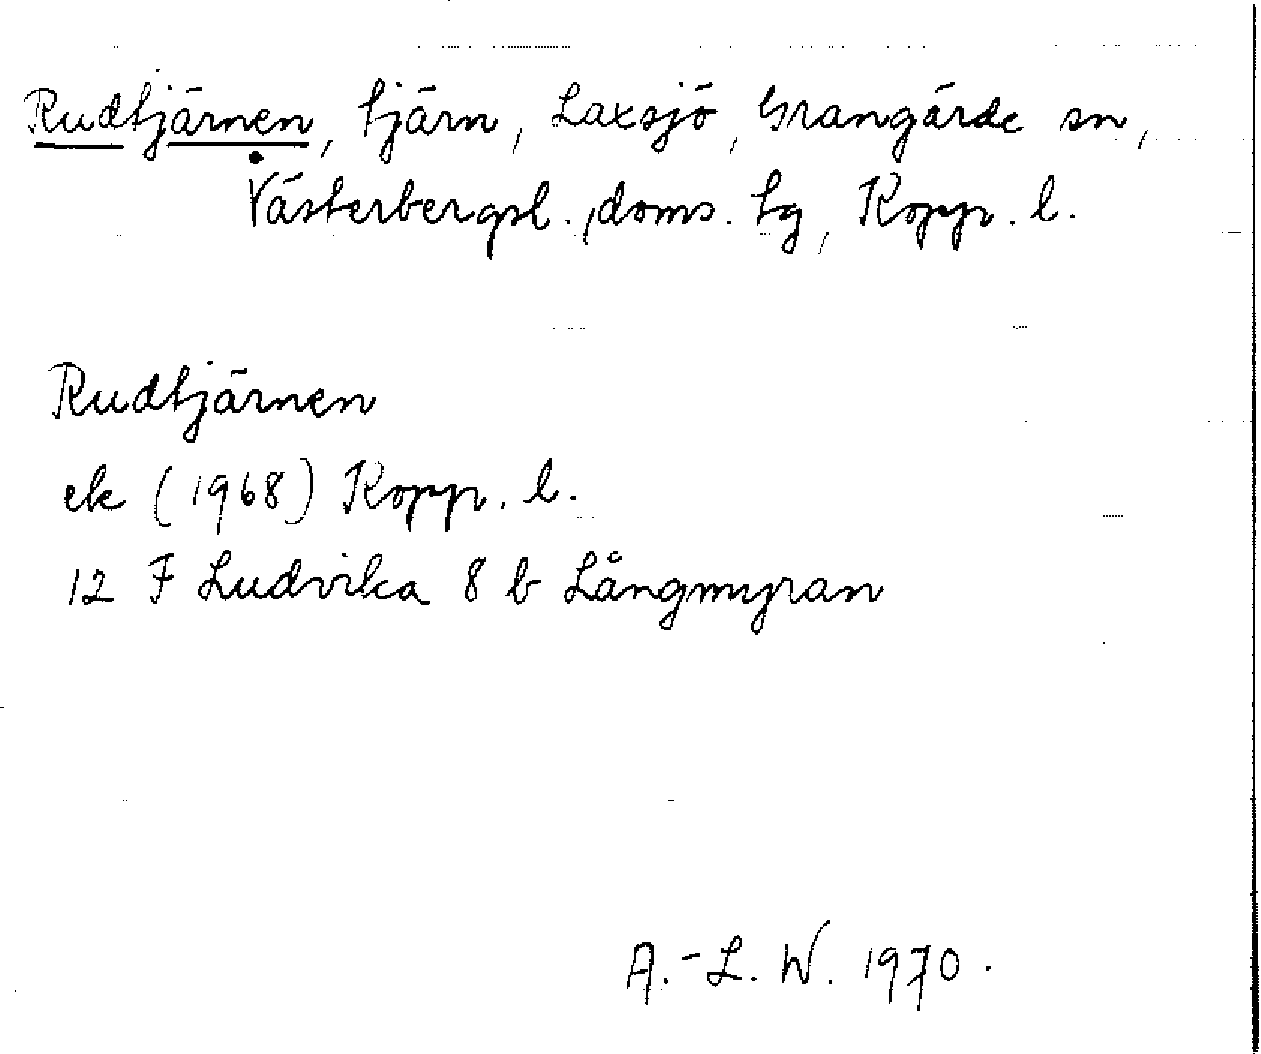 Rudtjärnen, tjärn, Laxsjö, Grangärde sn,
Västerbergsl., doms. tg, Kopp. l.
Rudtjärnen
ek (1968) Kopp. l.
12 F Ludvika 8 b Långmyran
A.-L. W. 1970.